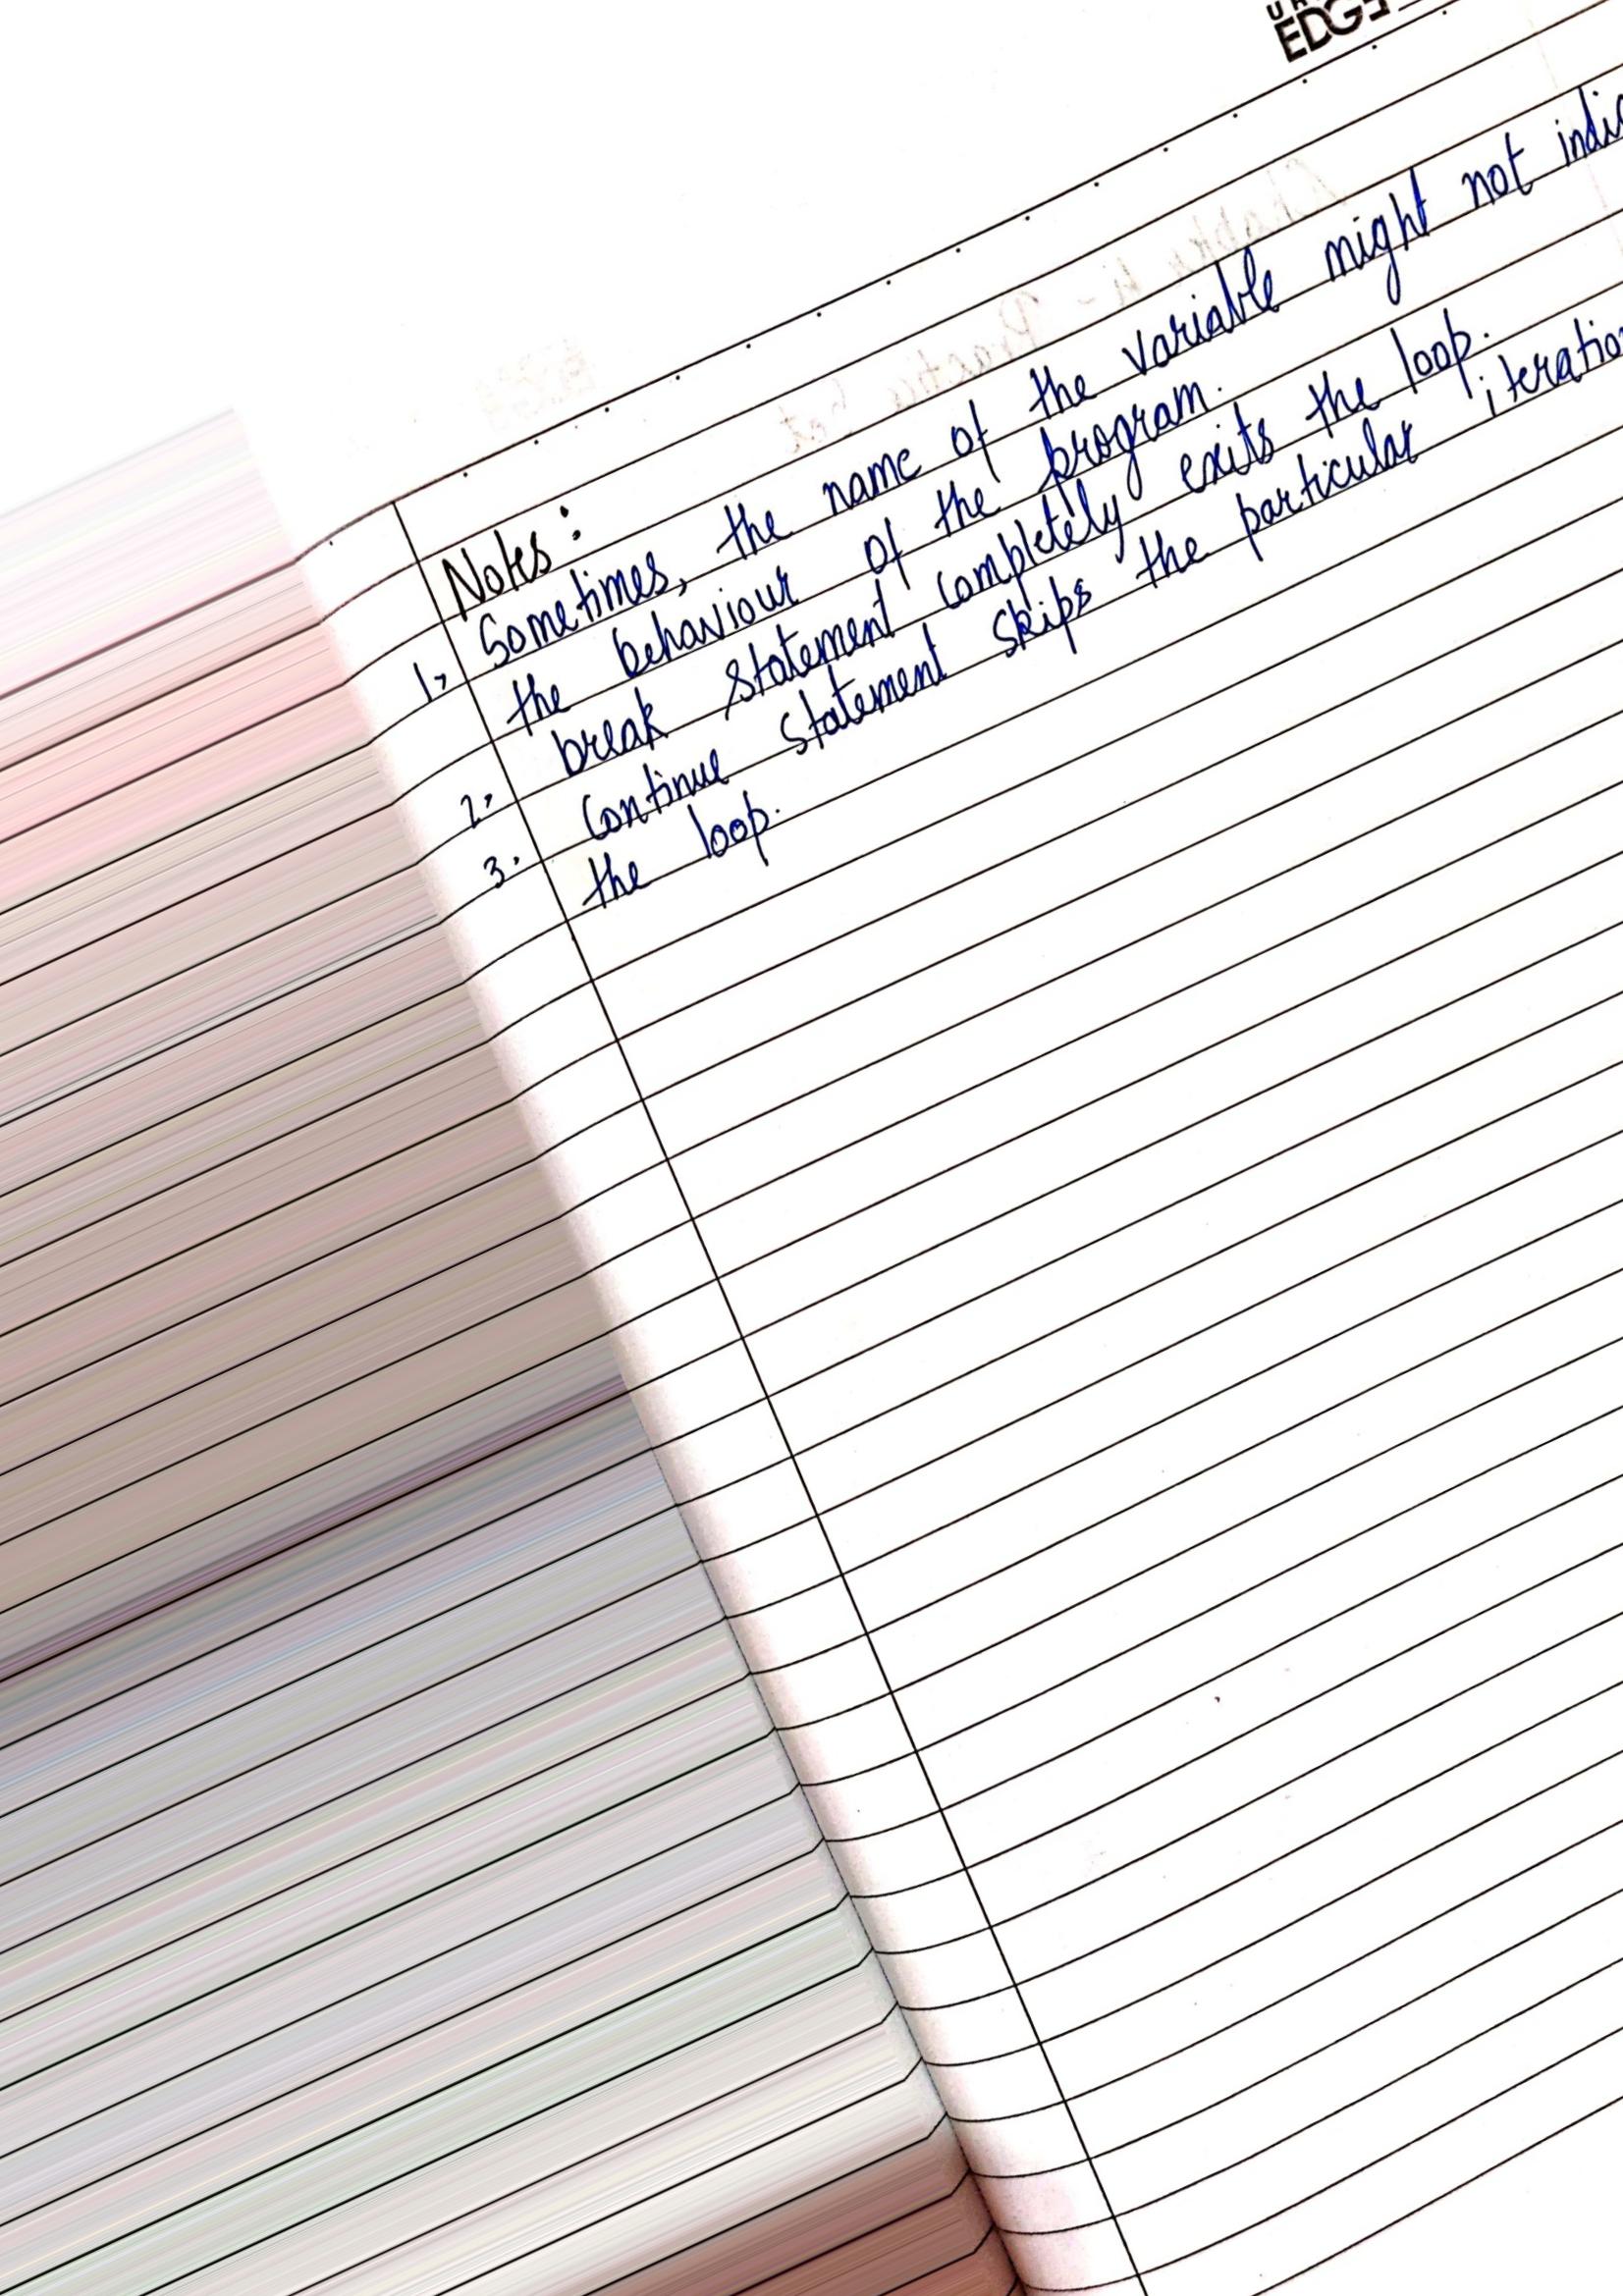 EDGE
Notes:
1. Sometimes, the name of the variable might not
the behaviour of the program.
2. break statement completely exits the loop.
3. Continue statement skips the particular iteration
the loop.